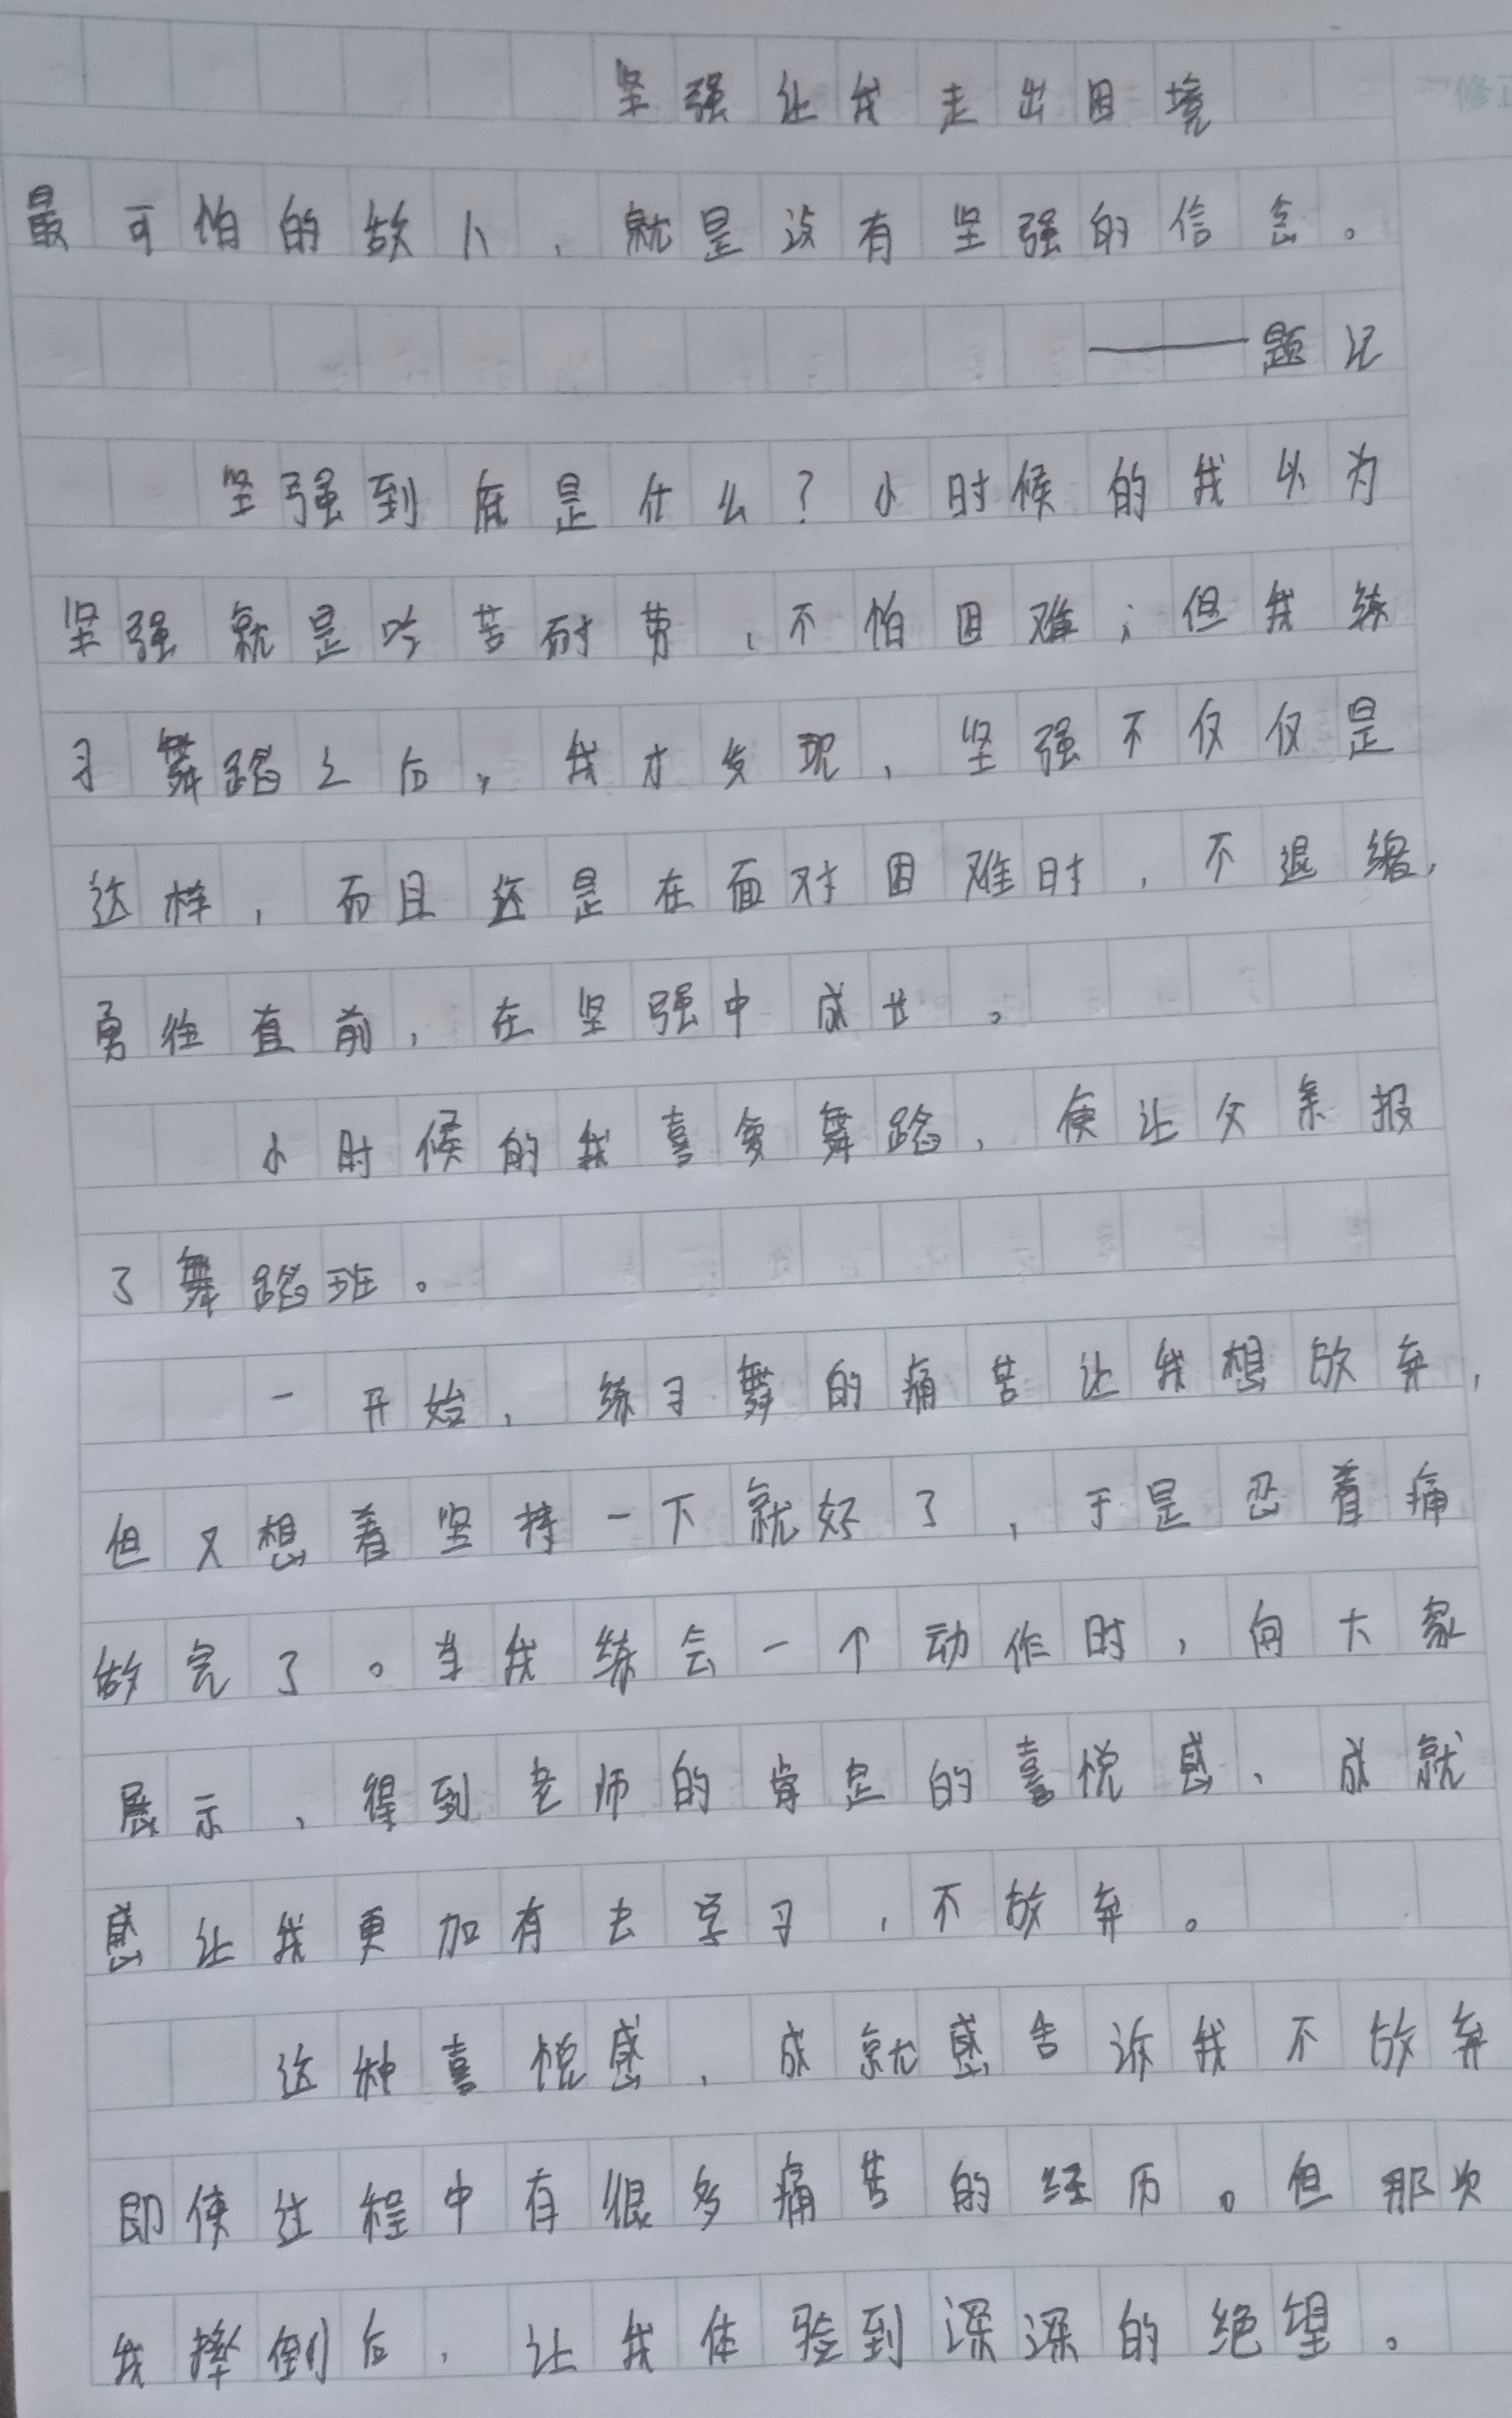 坚强让我走出困境
最可怕的敌人，就是没有坚强的信念。
——题记
坚强到底是什么？小时候的我以为
坚强就是吃苦耐劳，不怕困难；但我练
习舞蹈之后，我才发现，坚强不仅仅是
这样，而且还是在面对困难时，不退缩，
勇往直前，在坚强中成长。
小时候的我喜爱舞蹈，便让父亲报
了舞蹈班。
一开始，练习舞的痛苦让我想放弃，
但又想着坚持一下就好了，于是忍着痛
做完了。当我练会一个动作时，向大家
展示，得到老师的肯定的喜悦感、成就
感让我更加有去学习，不放弃。
这种喜悦感、成就感告诉我不放弃
即使过程中有很多痛苦的经历。但那次
我摔倒后，让我体验到深深的绝望。